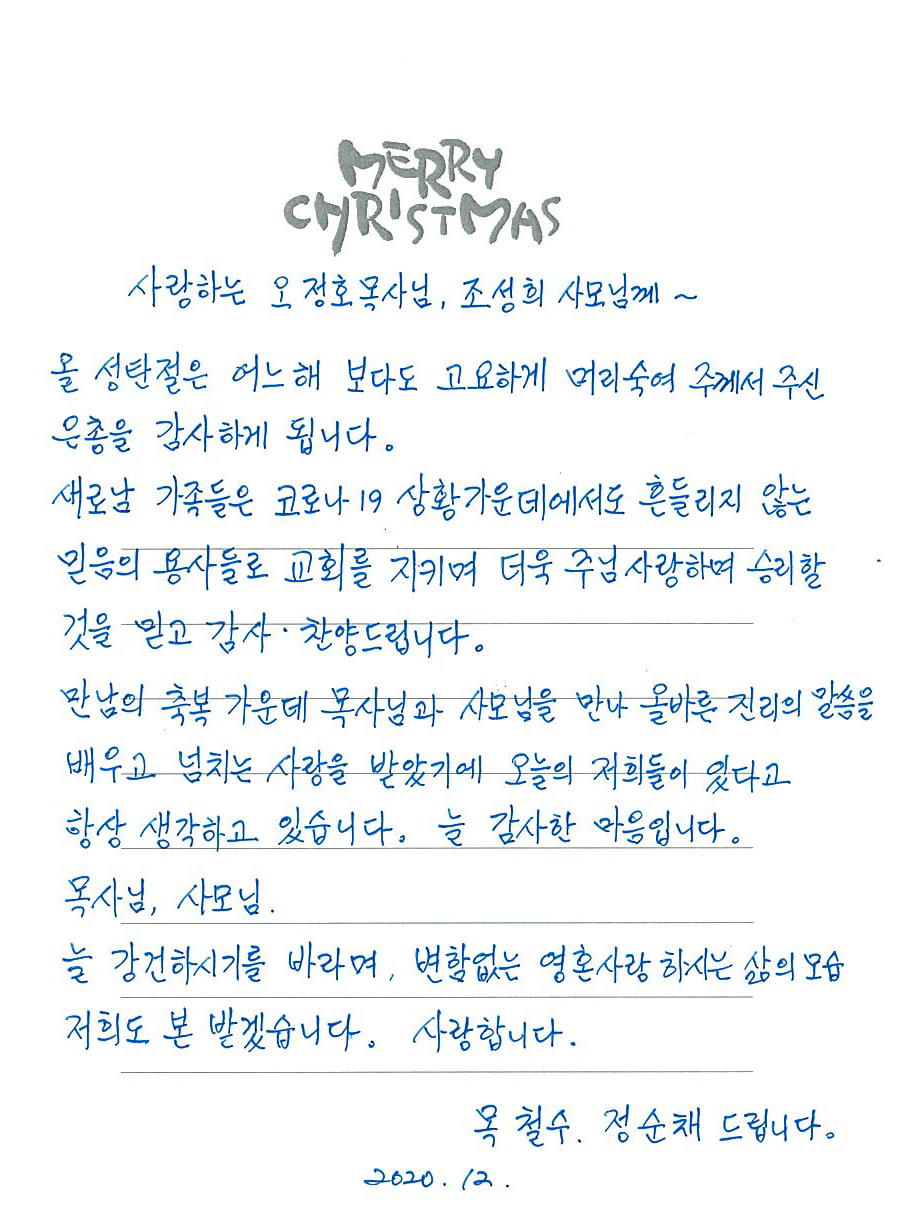 MERRY
CHRISTMAS
사랑하는 오정호목사님, 조성희 사모님께 ~
올 성탄절은 어느해 보다도 고요하게 머리숙여 주께서 주신
은총을 감사하게 됩니다.
새로남 가족들은 코로나19 상황가운데에서도 흔들리지 않는
믿음의 용사들로 교회를 지키며 더욱 주님사랑하며 승리할
것을 믿고 감사·찬양드립니다.
만남의 축복 가운데 목사님과 사모님을 만나 올바른 진리의 말씀을
배우고 넘치는 사랑을 받았기에 오늘의 저희들이 있다고
항상 생각하고 있습니다. 늘 감사한 마음입니다.
목사님, 사모님.
늘 강건하시기를 바라며, 변함없는 영혼사랑 하시는 삶의 모습
저희도 본 받겠습니다. 사랑합니다.
목철수. 정순채 드립니다.
2020.12.